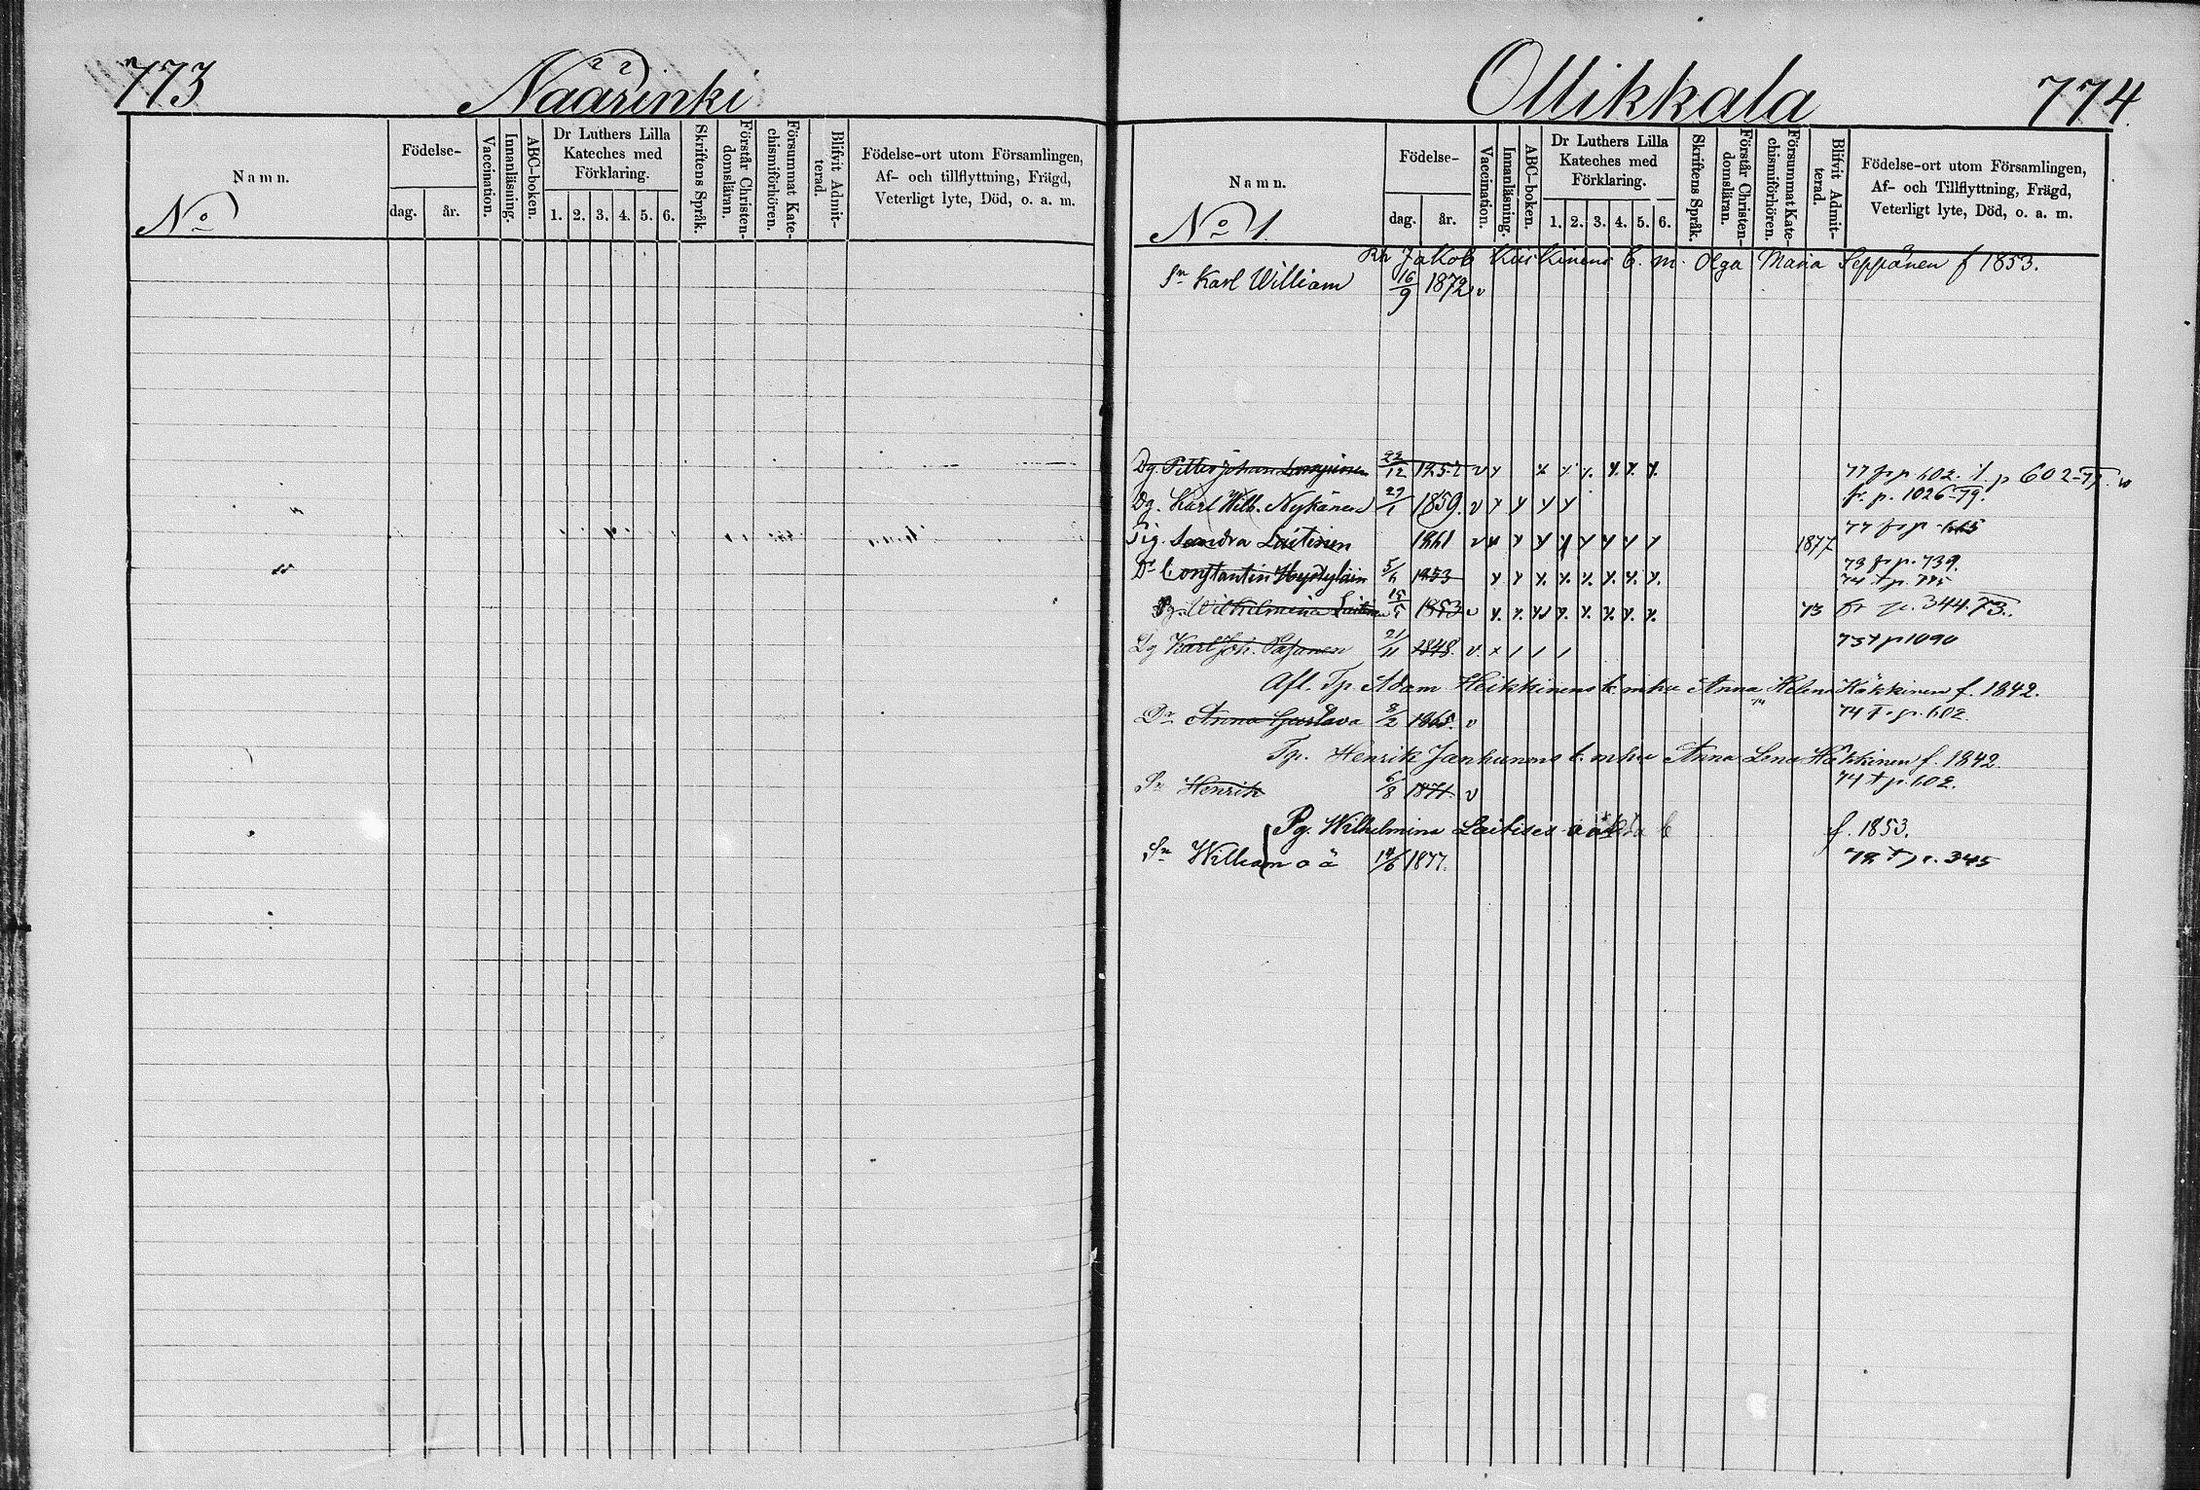 773
Näärinki
Namn.
No
Födelse-
dag.
år.
Vaccination.
Innanläsning.
ABC-boken.
Dr Luthers Lilla
Kateches med
Förklaring.
1. 2. 3. 4. 5. 6.
Skriftens Språk.
Förstår Christen-
domsläran.
Försummat Kate-
chismiförhören.
Blifvit Admit-
terad.
Födelse-ort utom Församlingen,
Af- och tillflyttning, Frägd,
Veterligt lyte, Död, o. a. m.
Ollikkala
774.
Namn.
No 1.
Födelse-
dag.
år.
Vaccination.
Innanläsning.
ABC-boken.
Dr Luthers Lilla
Kateches med
Förklaring.
1. 2. 3. 4. 5. 6.
Skriftens Språk.
Förstår Christen-
domsläran.
Försummat Kate-
chismiförhören.
Blifvit Admit-
terad.
Födelse-ort utom Församlingen,
Af- och Tillflyttning, Frägd,
Veterligt lyte, Död, o. a. m.
Jakob Kuskinens E. m. Olga Maria Seppänen f 1853.
Sn Karl William 16/9 1872 v
Dg. Petter Johan 22/12 v 77 fr p 602. p 602-77.
Dg. Karl Wilh. Nykänen 27/1 1859. v fr. p. 1026-79.
Pig. Sandra Laitinen 1861 v 1877 77 fr p 665
Constantin 5/6 1853 73 fr p. 739.
74 t p. 775
Pg. Wilhelmina Laitinen 15/5 1853 v 73 fr p. 344. 73.
Dg Karl Joh. Pasanen 21/11 1848. v. 73 t p 1090
Afl. Tp. Adam Heikkinens e. mhu Anna Helena Häkkinen f. 1842.
Dr Anna Gustava 8/2 1865. v 74 t p. 602
Tp. Henrik Janhunens e. mhu Anna Lena Häkkinen f. 1842.
Sn Henrik 6/8 1871. v 74 t p. 602.
Pg. Wilhelmina Laitises oäkta b f. 1853.
Sn William o ä 14/6 1877. 78 t p. 345